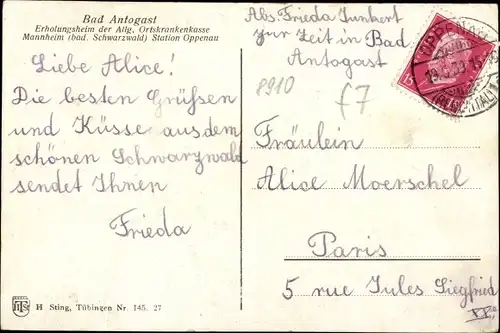 Bad Antogast
Erholungsheim der Allg. Ortskrankenkasse
Mannheim (bad. Schwarzwald) Station Oppenau
Liebe Alice!
Die besten Grüssen
und Küsse aus dem
schönen Schwarzwald
sendet Ihnen
Frieda
H Sting, Tübingen Nr. 145. 27
Abs. Frieda Junkert
zur Zeit in Bad
Antogast
8910
f7
15
OPPENAU
Fräulein
Alice Moerschel
Paris
5 rue Jules Siegfried
XX.